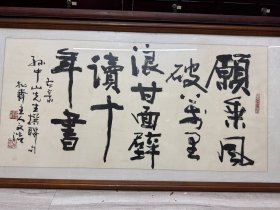 願乘風
破萬里
浪甘面壁
讀十
年書
孫中山先生撰聯